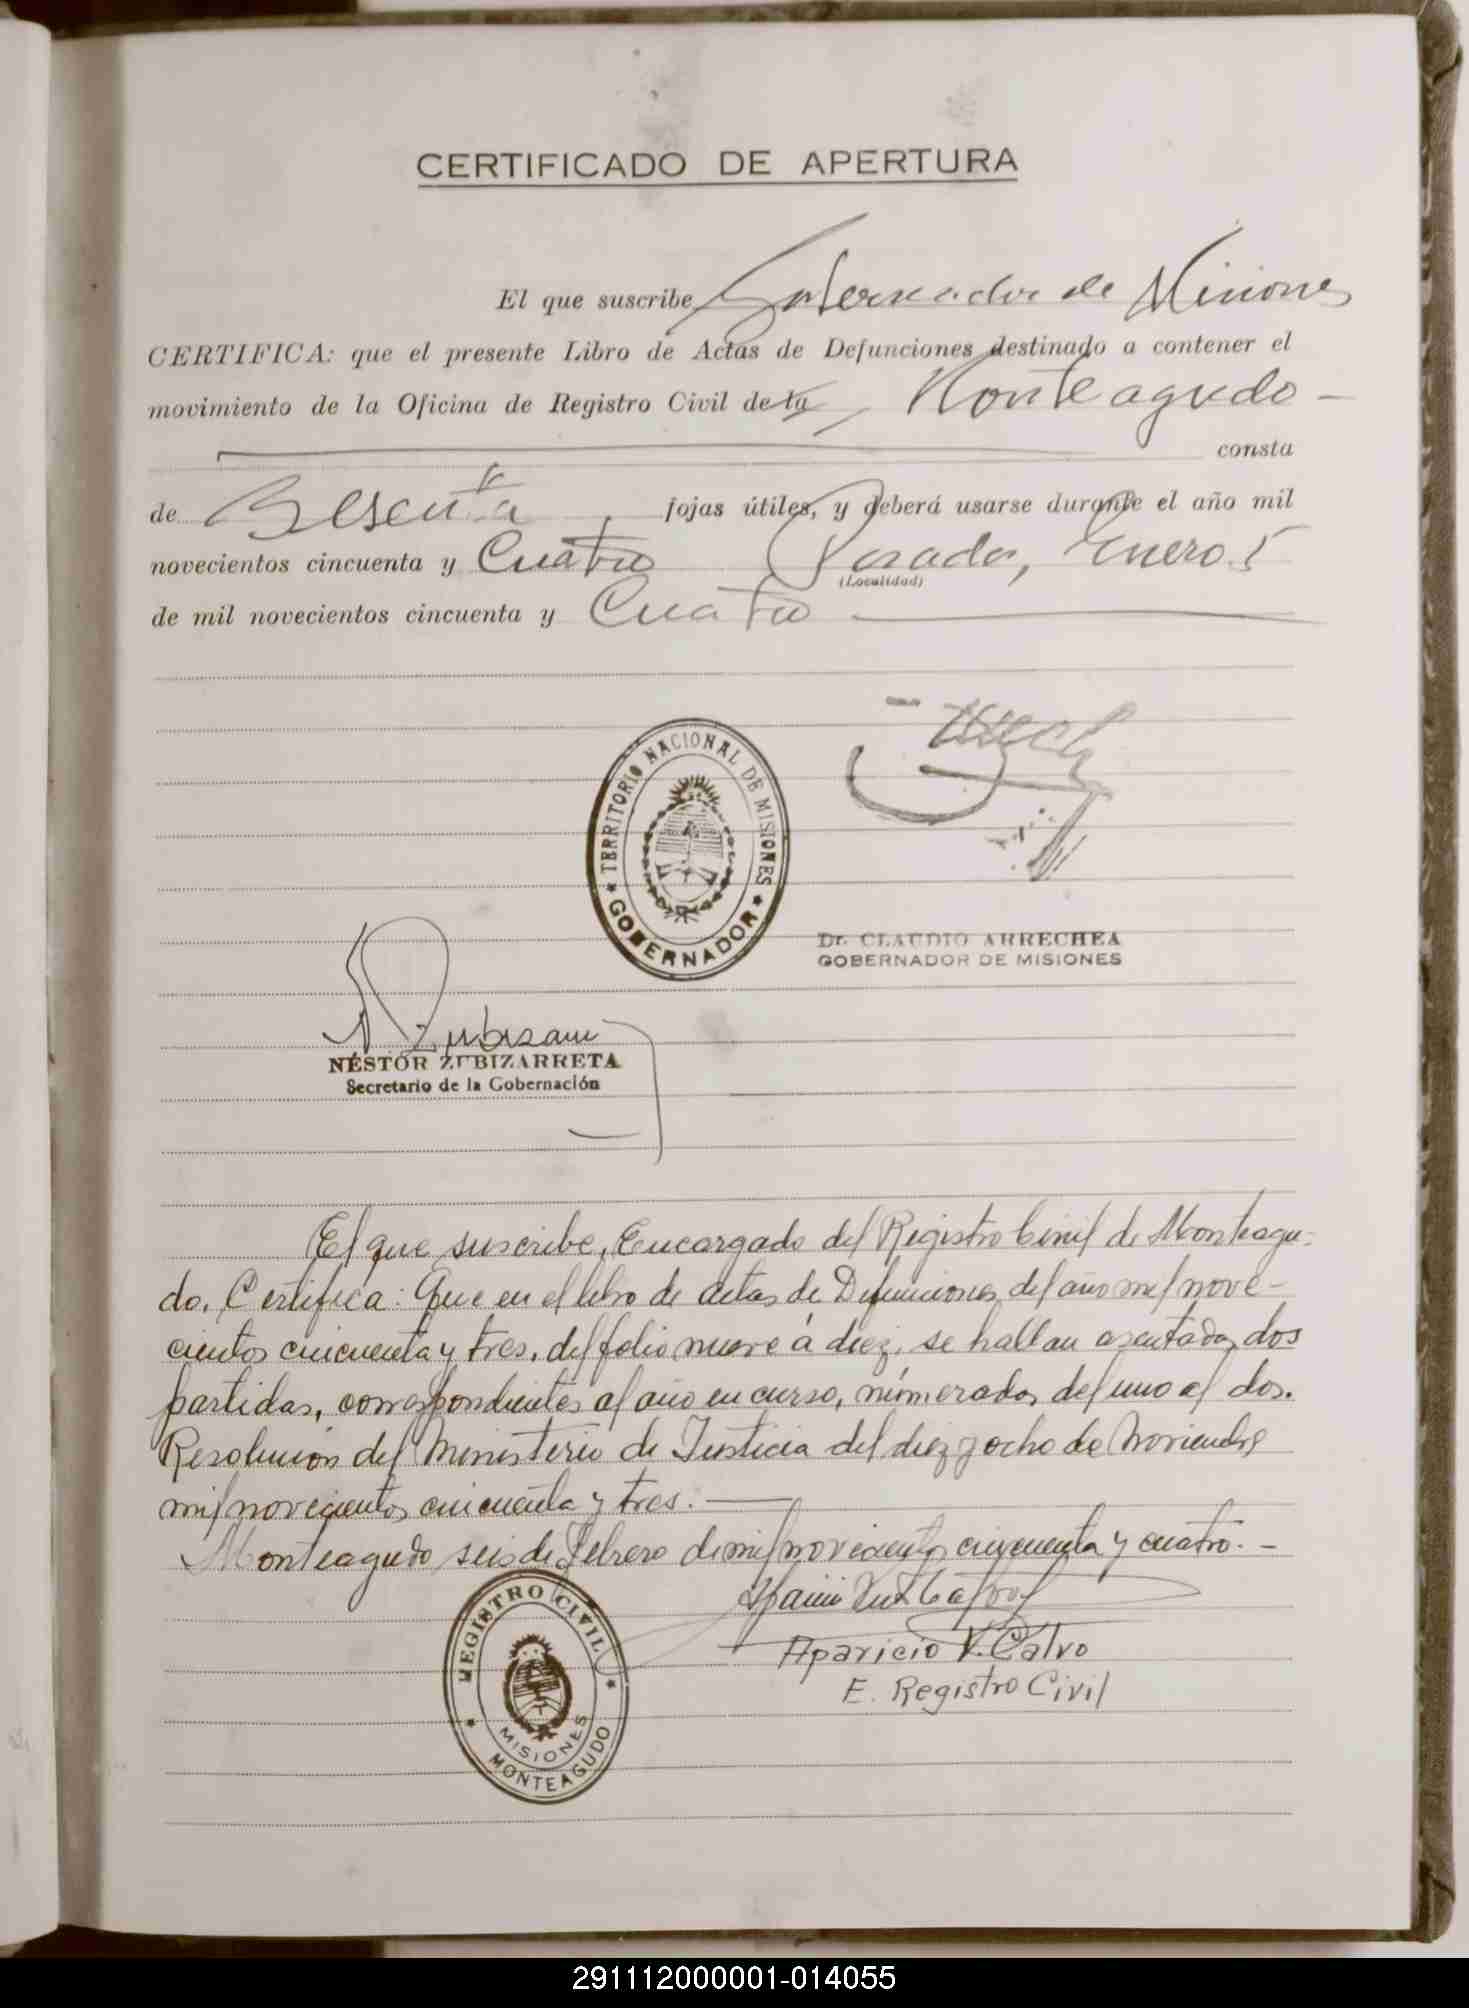 CERTIFICADO DE APERTURA
El que suscribe Gobernador de Misiones
CERTIFICA: que el presente Libro de Actas de Defunciones destinado a contener el
movimiento de la Oficina de Registro Civil de la Monteagudo
consta
de Sesenta fojas útiles, y deberá usarse durante el año mil
novecientos cincuenta y Cuatro Posadas, Enero 5
(Localidad)
de mil novecientos cincuenta y Cuatro
TERRITORIO NACIONAL DE MISIONES
GOBERNADOR
Dr. CLAUDIO ARRECHEA
GOBERNADOR DE MISIONES
NÉSTOR ZUBIZARRETA
Secretario de la Gobernación
El que suscribe, Encargado del Registro Civil de Monteagu-
do, Certifica: Que en el libro de actas de Defunciones del año mil nove-
cientos cincuenta y tres, del folio nueve á diez, se hallan asentadas dos
partidas, correspondientes al año en curso, númeradas del uno al dos.
Resolución del Ministerio de Justicia del diez y ocho de Noviembre
mil novecientos cincuenta y tres.
Monteagudo seis de Febrero de mil novecientos cincuenta y cuatro.-
Aparicio V. Calvo
E. Registro Civil
REGISTRO CIVIL
MISIONES
MONTEAGUDO
291112000001-014055